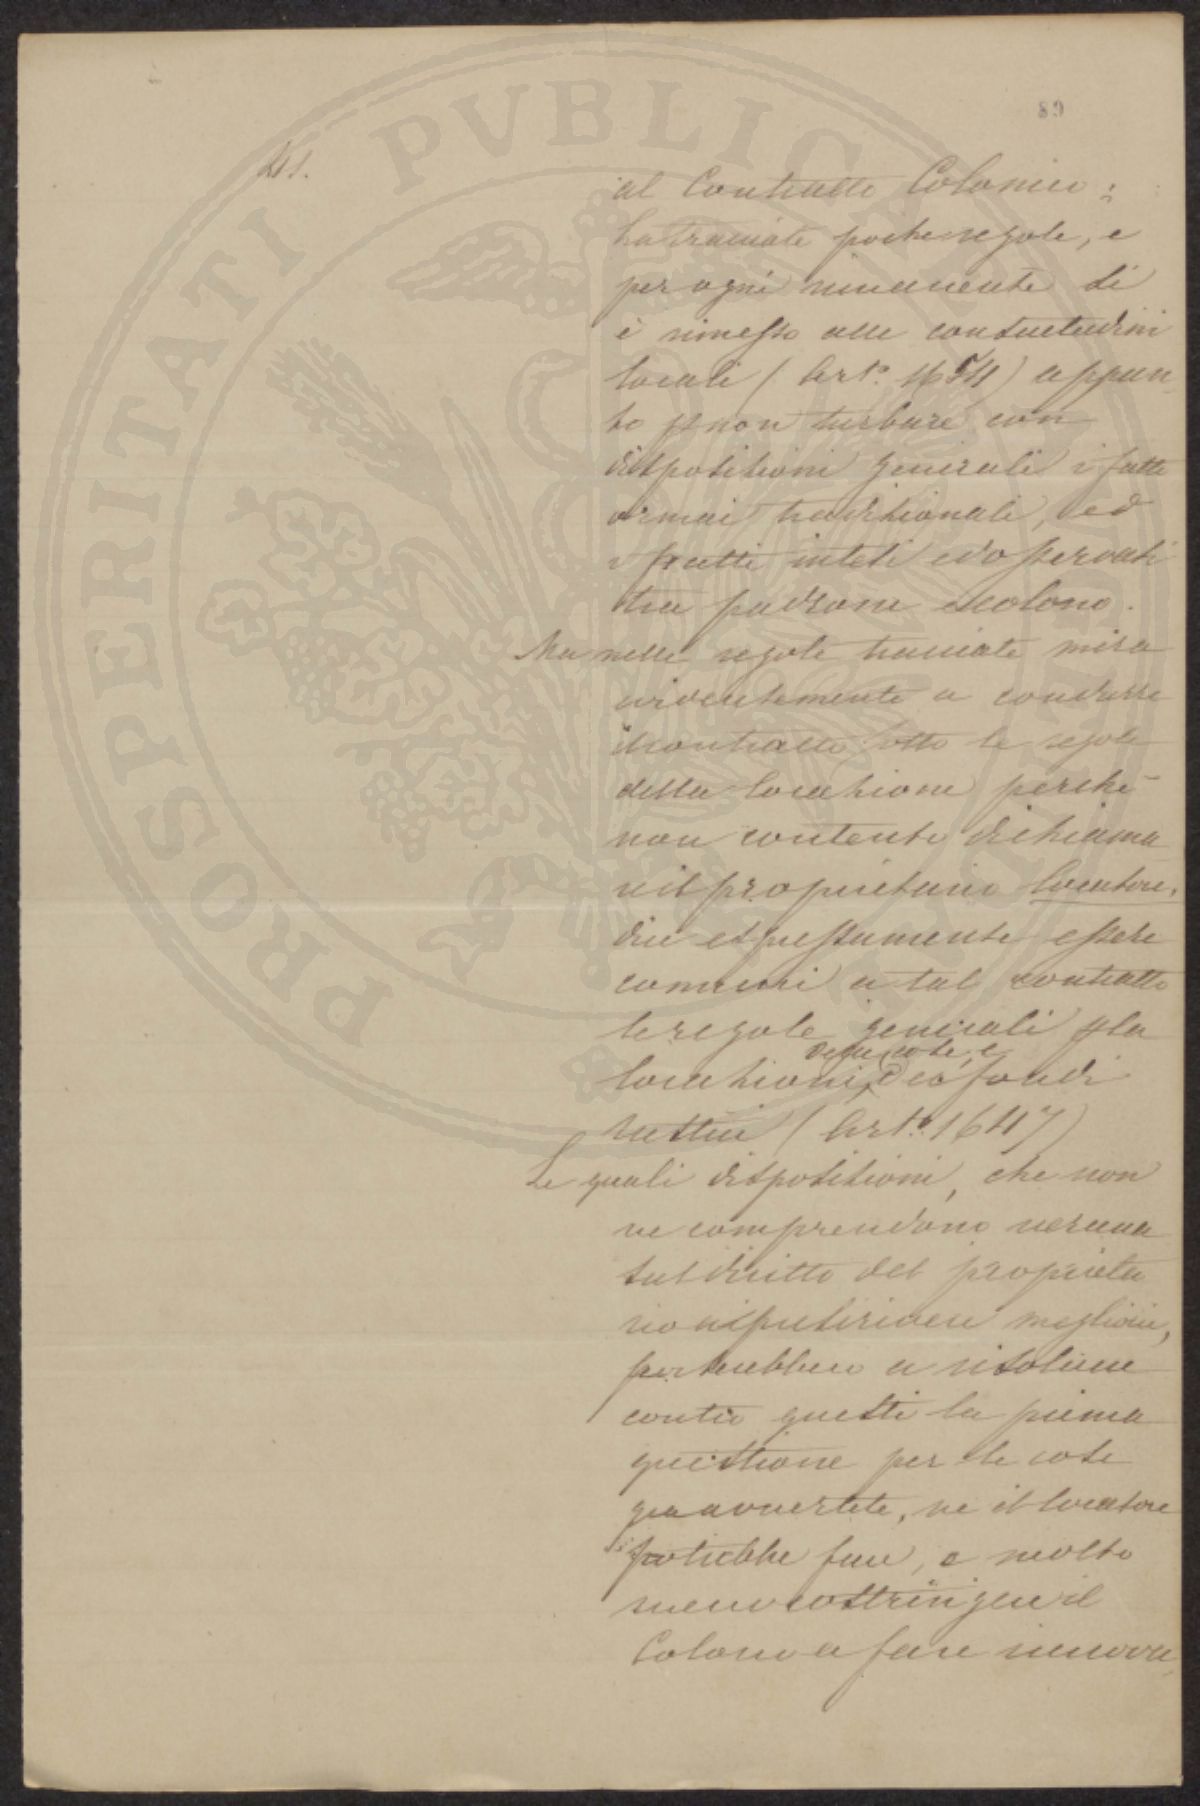 89
41.
al Contratto Colonico:
ha tracciate poche regole, e
per ogni rimanente si
è rimesso alle consuetudini
locali (Art.º 1654) appun
to p non turbare con
disposizioni generali i fatti
ormai tradizionali, ed
i patti intesi ed osservati
tra padrone e colono.
Ma nelle regole tracciate mira
evidentemente a condurre
il contratto sotto le regole
della locazione perchè
non contento di chiama
re il proprietario locatore,
dice espressamente essere
comuni a tal contratto
le regole generali p la
locazioni, delle cose, e dei fondi
rustici (Art.º 1647)
Le quali disposizioni, che non
ne comprendono veruna
sul diritto del proprieta
rio a migliorie,
porterebbero a risolvere
contro questi la prima
questione per le cose
già avvertite, nè il locatore
potrebbe fare, e molto
meno costringere il
Colono a fare innova
PROSPERITATI PVBLICAE